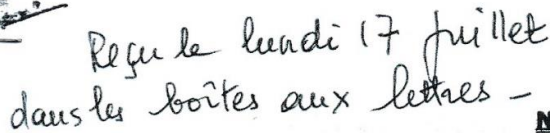 Reçu le lundi 17 juillet
dans les boîtes aux lettres -
N